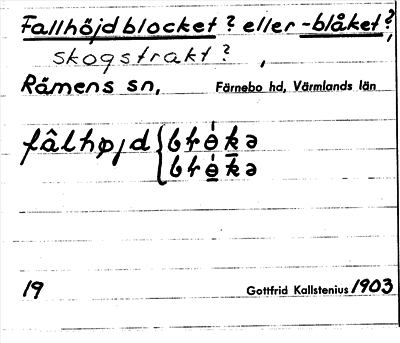 Fallhöjdblocket? eller -blåket?,
skogstrakt? ,
Rämens sn, Färnebo hd, Värmlands län
fâlhøjd
19 Gottfrid Kallstenius 1903